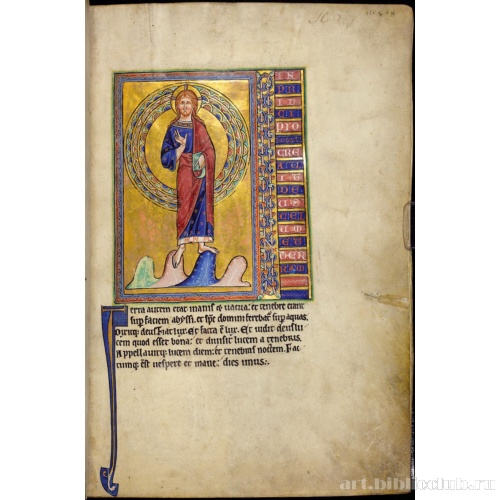 IN
PRI
CI
PIO
CRE
AVIT
DE
US
CELU
M ET
TER
RAM
Terra autem erat inanis & vacua: et tenebre erant
sup faciem abyssi. et spc domini ferebat sup aquas.
Dixitq; deus. Fiat lux. Et facta e lux. Et vidit deus lu
cem quod esset bona: et divisit lucem a tenebris.
Appellavitq; lucem diem: et tenebras noctem. Fac
tumq; est vespere et mane: dies unus:.
art.biblioclub.ru